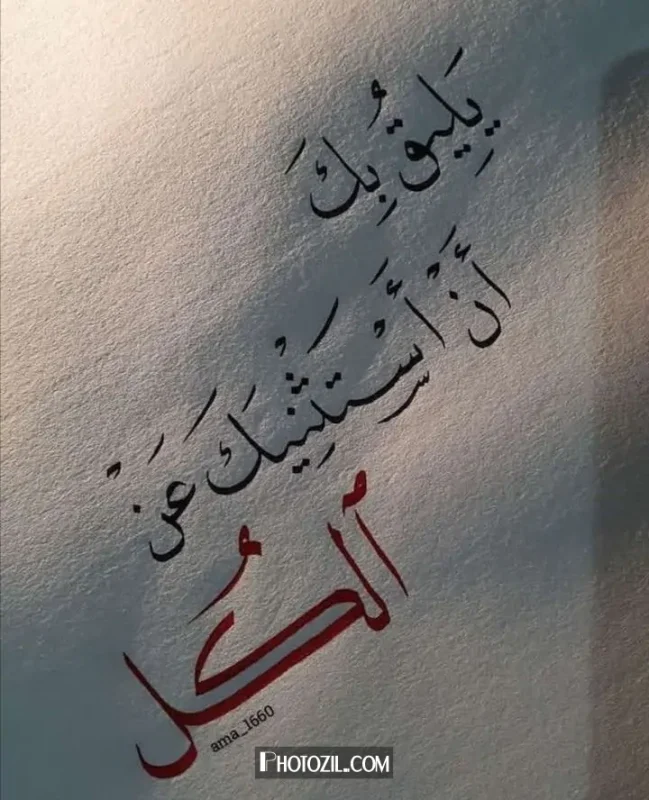 يَلِيقُ بِكَ
أَنْ أَسْتَثْنِيكَ عَنْ
ٱلكُل
ama_1660
PHOTOZIL.COM